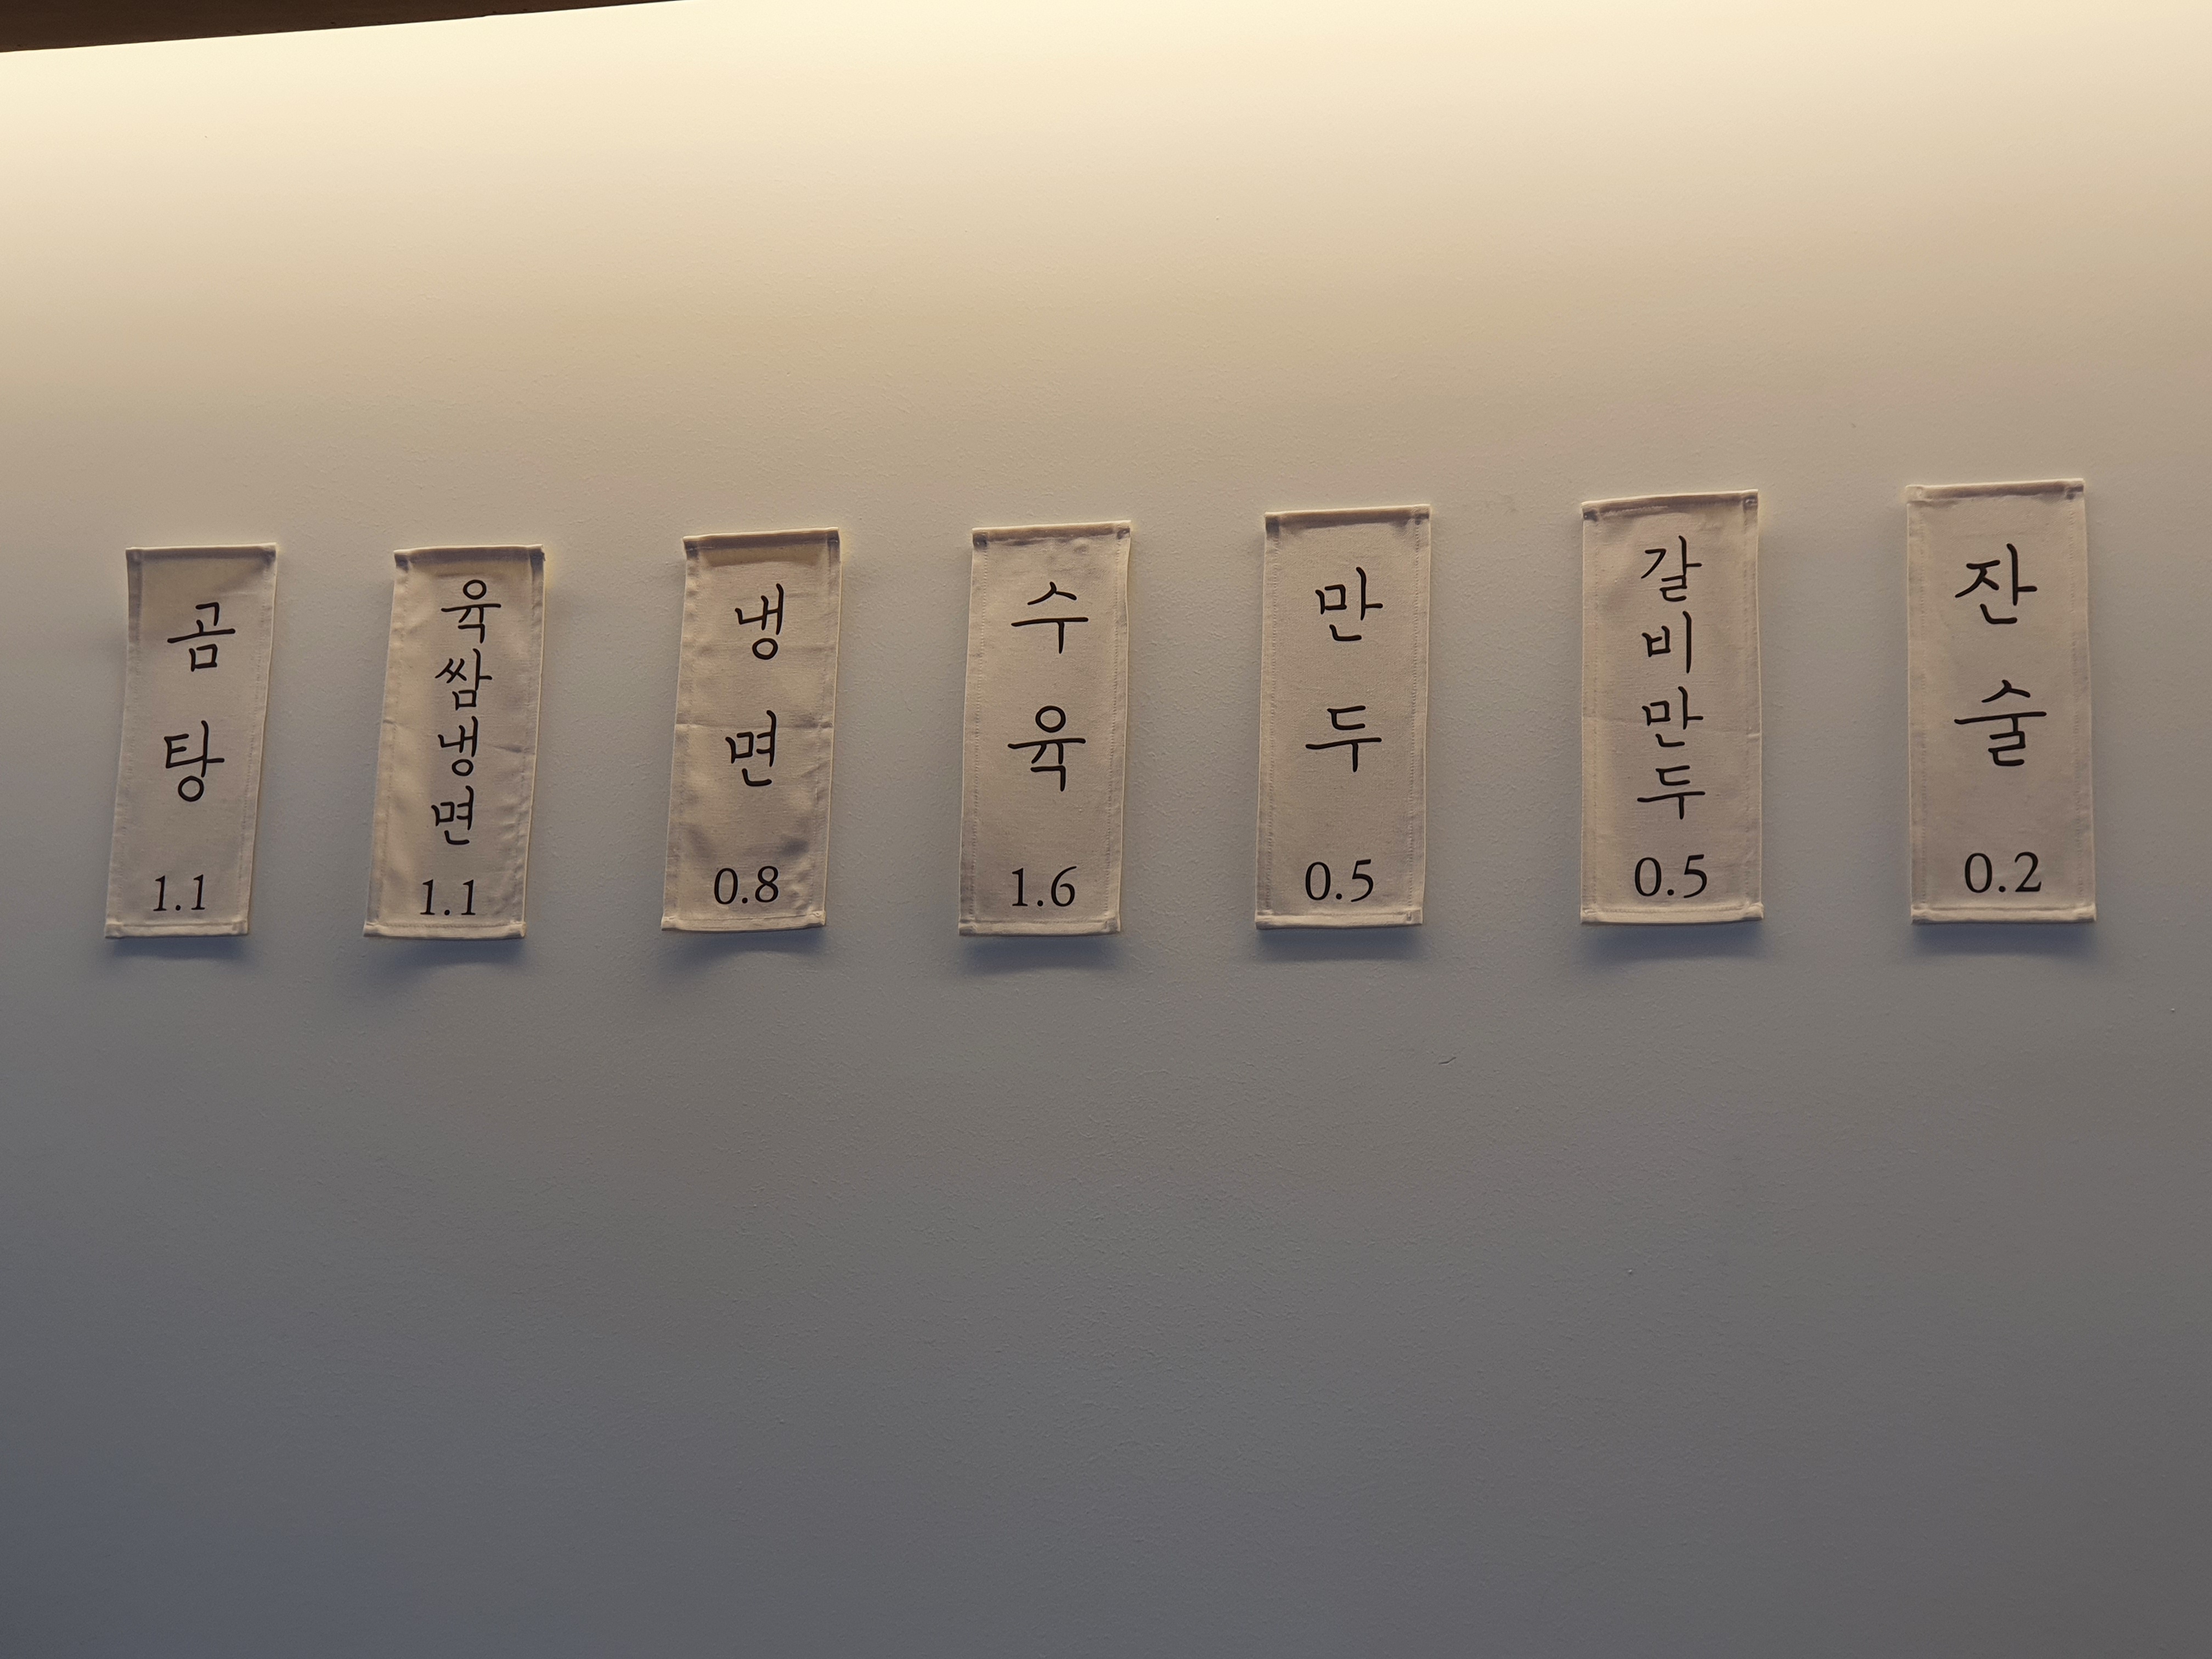 곰탕
1.1
육쌈냉면
1.1
냉면
0.8
수육
1.6
만두
0.5
갈비만두
0.5
잔술
0.2